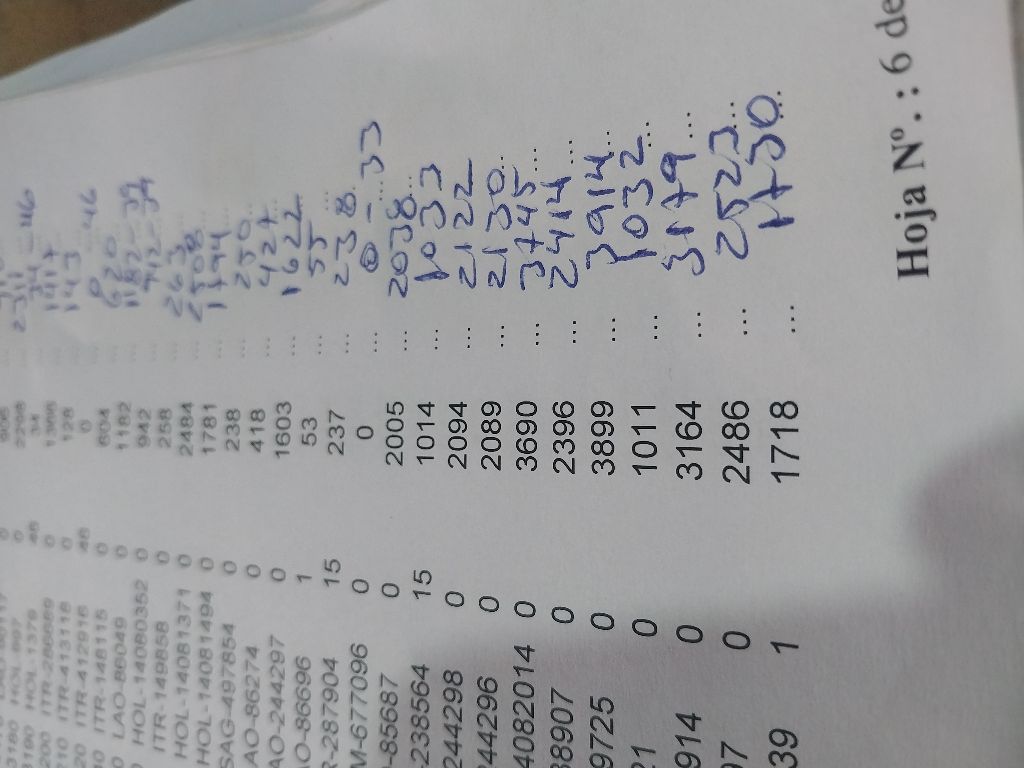 2298 ... 2311
HOL-1379 34 ... 34 - 46
ITR-413118 0 128 ... 143
ITR-412916 46 0 ... 0 46
ITR-148115 0 604 ... 620
LAO-86049 0 1182 ...
HOL-14080352 0 942 ... 942 - 34
ITR-149858 0 258 ... 263
HOL-14081371 0 2484 ... 2508
HOL-14081494 0 1781 ... 1794
SAG-497854 0 238 ... 250
AO-86274 0 418 ... 427
AO-244297 0 1603 ... 1622
O-86696 1 53 ... 55
R-287904 15 237 ... 238
M-677096 0 0 ... 0 - 33
-85687 0 2005 ... 2038
-238564 15 1014 ... 1033
244298 0 2094 ... 2122
44296 0 2089 ... 2130
4082014 0 3690 ... 3745
38907 0 2396 ... 2414
9725 0 3899 ... 3914
21 0 1011 ... 1032
914 0 3164 ... 3179
97 0 2486 ... 2523
39 1 1718 ... 1730
Hoja Nº. : 6 de